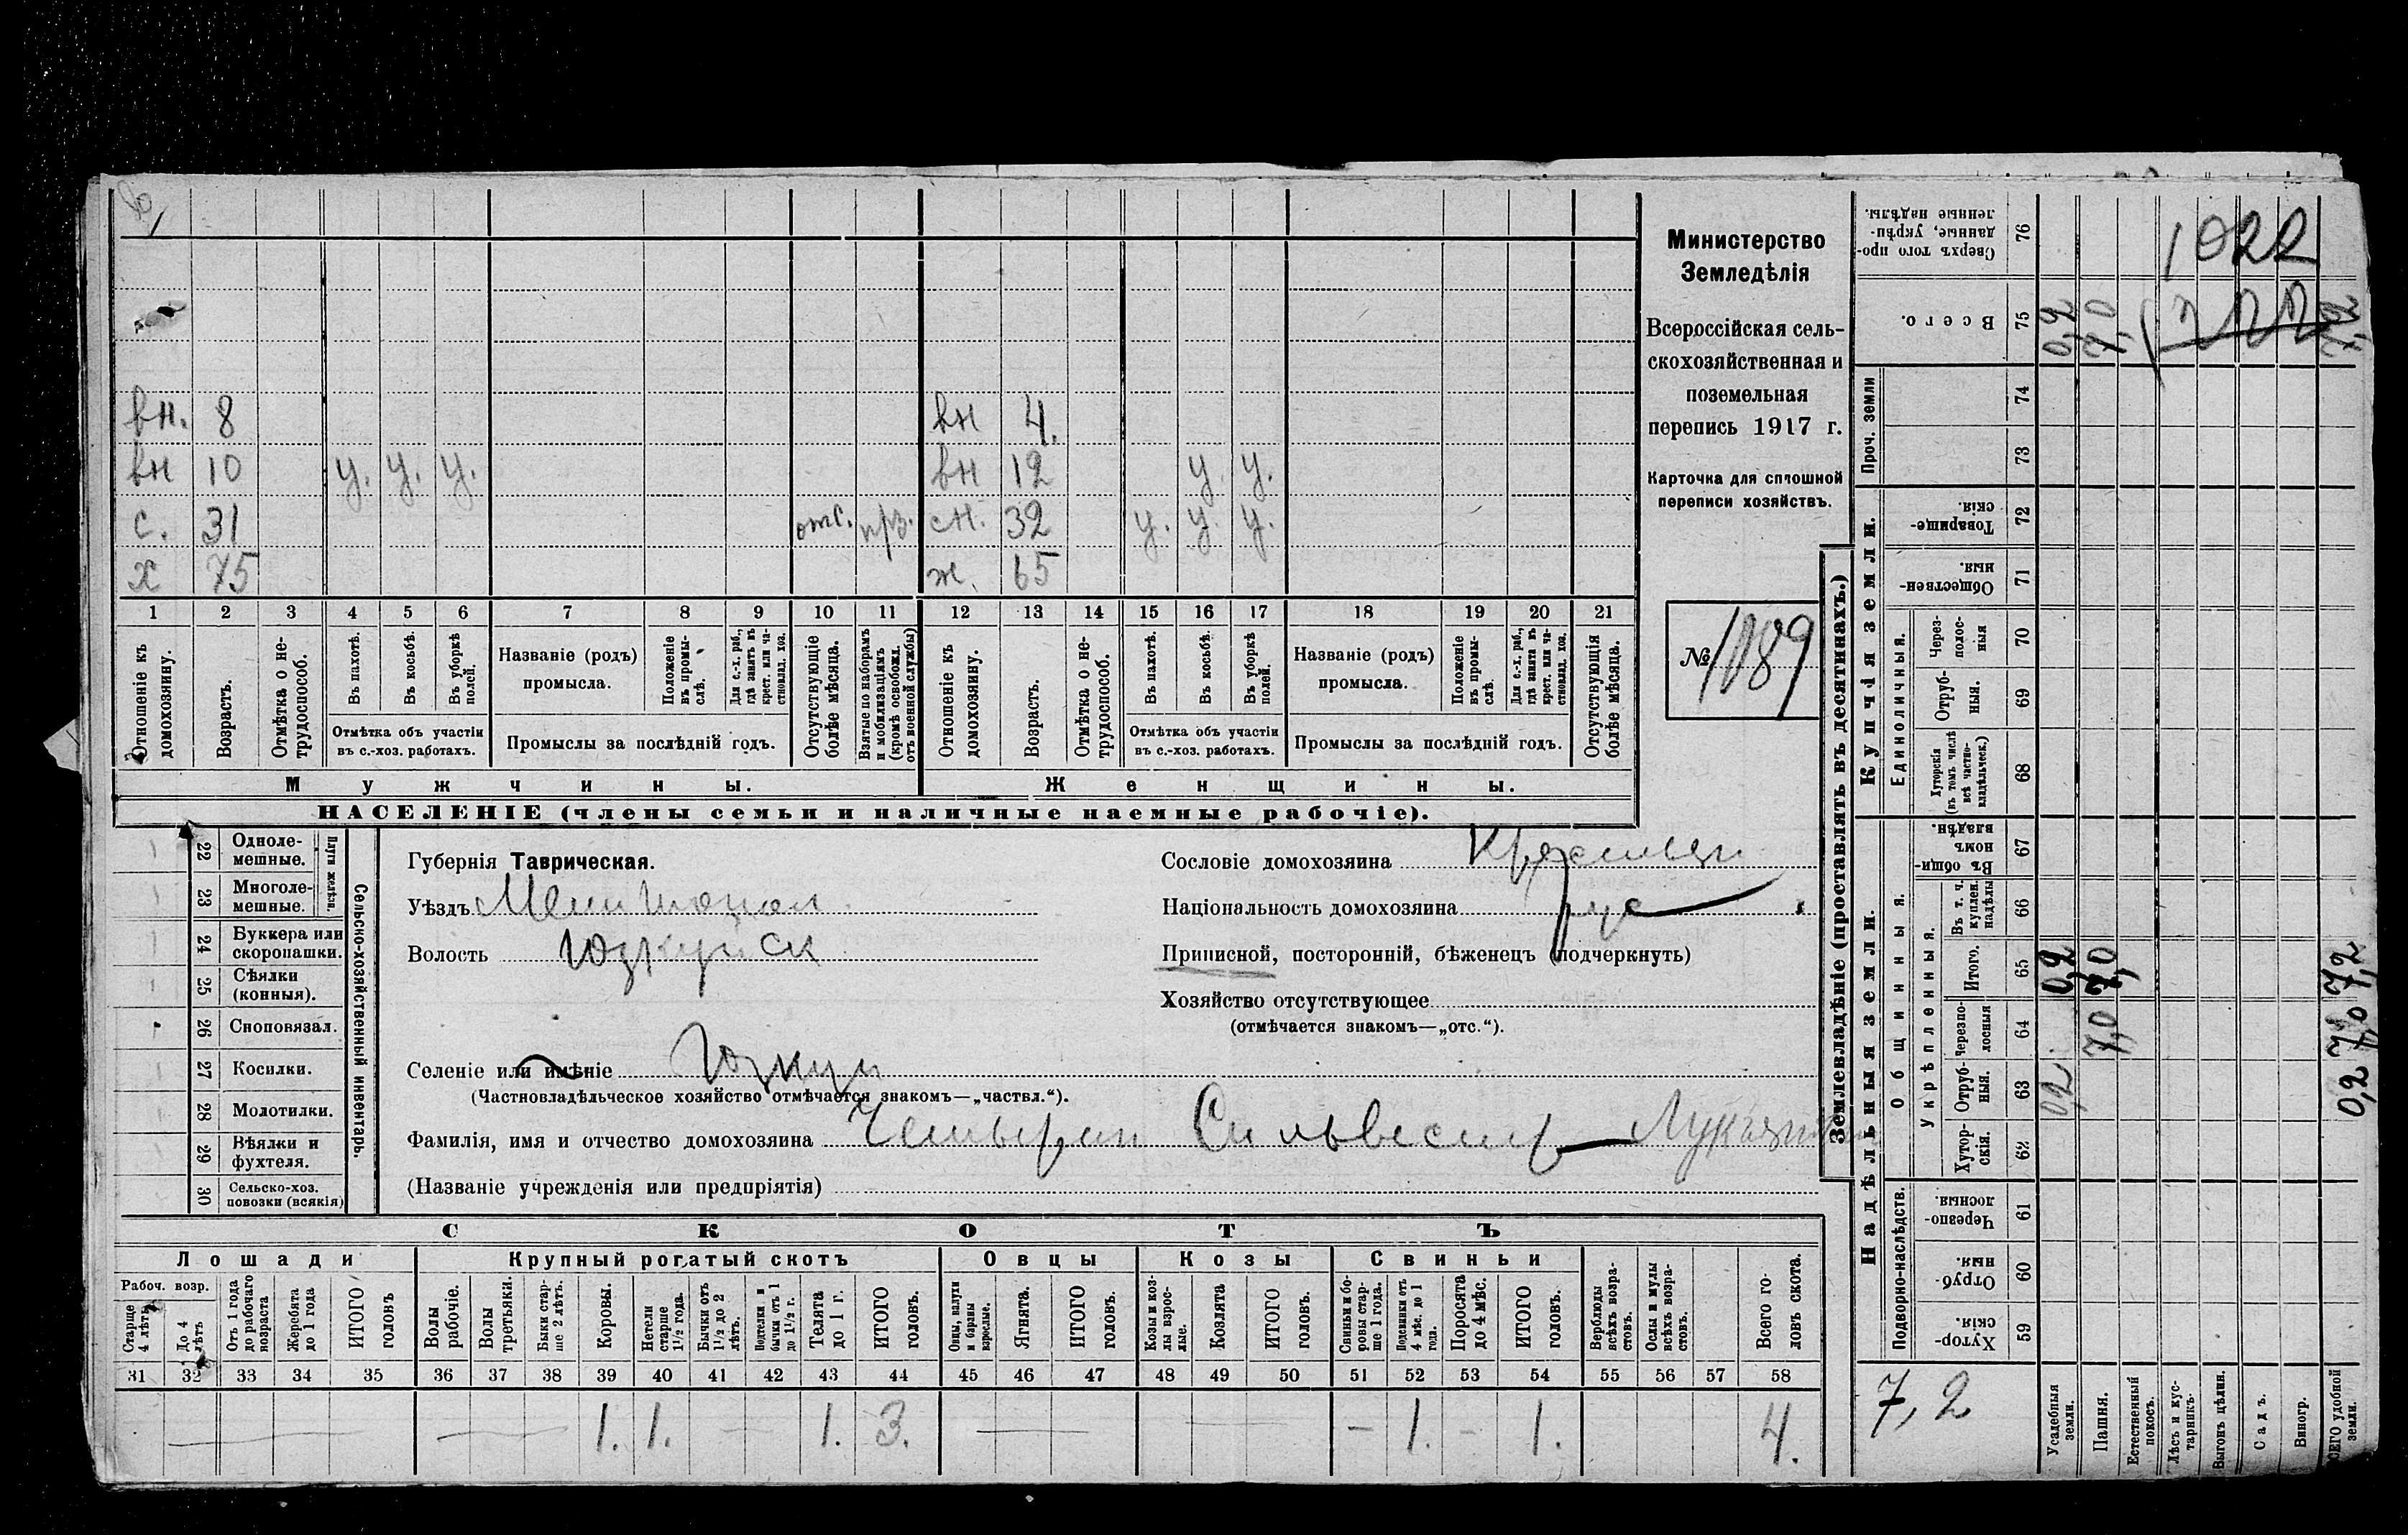 вн. 8 вн 4.
вн 10 у. у. у. вн 12 у. у.
с. 31 отс. прз. сн. 32 у. у. у.
х 75 ж. 65
1 2 3 4 5 6 7 8 9 10 11 12 13 14 15 16 17 18 19 20 21
Отношеніе къ домохозяину.
Возрастъ.
Отмѣтка о не-трудоспособ.
Въ пахотѣ.
Въ косьбѣ.
Въ уборкѣ полей.
Отмѣтка объ участіи
въ с.-хоз. работахъ.
Названіе (родъ)
промысла.
Положеніе въ промы-слѣ.
Для с.-х. раб., гдѣ занятъ въ крест. или ча-стновлад. хоз.
Промыслы за послѣдній годъ.
Отсутствующіе болѣе мѣсяца.
Взятые по наборамъ и мобилизаціямъ (кромѣ освобожд. отъ военной службы)
Отношеніе къ домохозяину.
Возрастъ.
Отмѣтка о не-трудоспособ.
Въ пахотѣ.
Въ косьбѣ.
Въ уборкѣ полей.
Отмѣтка объ участіи
въ с.-хоз. работахъ.
Названіе (родъ)
промысла.
Положеніе въ промы-слѣ.
Для с.-х. раб., гдѣ занята въ крест. или ча-стновлад. хоз.
Промыслы за послѣдній годъ.
Отсутствующія болѣе мѣсяца.
Мужчины. Женщины.
НАСЕЛЕНІЕ (члены семьи и наличные наемные рабочіе).
Министерство
Земледѣлія
Всероссійская сель-
скохозяйственная и
поземельная
перепись 1917 г.
Карточка для сплошной
переписи хозяйствъ.
№ 1189
22 Одноле-мешные.
23 Многоле-мешные.
Плуги желѣзн.
24 Буккера или скоропашки.
25 Сѣялки (конныя).
26 Сноповязал.
27 Косилки.
28 Молотилки.
29 Вѣялки и фухтеля.
30 Сельско-хоз. повозки (всякія)
Сельско-хозяйственный инвентарь.
Губернія Таврическая.
Уѣздъ Мелитопол
Волость Юзкуйск
Селеніе или имѣніе Юзкуи
(Частновладѣльческое хозяйство отмѣчается знакомъ—„частвл.“).
Фамилія, имя и отчество домохозяина Сильвестр
(Названіе учрежденія или предпріятія)
Сословіе домохозяина
Національность домохозяина рус
Приписной, посторонній, бѣженецъ (подчеркнуть)
Хозяйство отсутствующее
(отмѣчается знакомъ—„отс.“).
СКОТЪ
Лошади Крупный рогатый скотъ Овцы Козы Свиньи
Рабоч. возр.
Старше 4 лѣтъ
До 4 лѣтъ
Отъ 1 года до рабочаго возраста
Жеребята до 1 года
ИТОГО головъ
Волы рабочіе.
Волы третьяки.
Быки стар-ше 2 лѣтъ.
Коровы.
Нетели старше 1½ года.
Бычки отъ 1½ до 2 лѣтъ.
Подтелки и бычки отъ 1 до 1½ г.
Телята до 1 г.
ИТОГО головъ.
Овцы, валухи и бараны взрослые.
Ягнята.
ИТОГО головъ.
Козы и коз-лы взрос-лые.
Козлята
ИТОГО головъ.
Свиньи и бо-ровы стар-ше 1 года.
Подсвинки отъ 4 мѣс. до 1 года.
Поросята до 4 мѣс.
ИТОГО головъ.
Верблюды всѣхъ возра-стовъ.
Ослы и мулы всѣхъ возра-стовъ.
Всего го-ловъ скота.
31 32 33 34 35 36 37 38 39 40 41 42 43 44 45 46 47 48 49 50 51 52 53 54 55 56 57 58
1. 1. — 1. 3. — — — 1. — 1. 4.
Землевладѣніе (проставлять въ десятинахъ.)
Купчія земли.
Надѣльныя земли.
Сверхъ того про-данные, укрѣп-ленные надѣлы. 76
Всего. 75 0,2 7,0 7,2
1022
Проч. земли 74 73
Товарище-скія. 72
Обществен-ныя. 71
Единоличныя.
Через-полос-ныя 70
Отруб-ныя. 69
Хуторскія (въ томъ числѣ всѣ частно-владѣльческ.) 68
Общинныя.
Въ общи-номъ владѣн. 67
Укрѣпленныя.
Въ т. ч. куплен. надѣлы 66
Итого. 65 0,2 7,0 7,2
Черезпо-лосныя 64 7,0 7,0
Отруб-ныя. 63 0,2 0,2
Хутор-скія. 62
Подворно-наслѣдств.
Черезпо-лосныя. 61
Отруб-ныя. 60
Хутор-скія. 59
7,2
Усадебныя земли.
Пашня.
Естественный покосъ.
Лѣсъ и кус-тарникъ.
Выгонъ цѣлин.
Садъ.
Виногр.
ВСЕГО удобной земли.